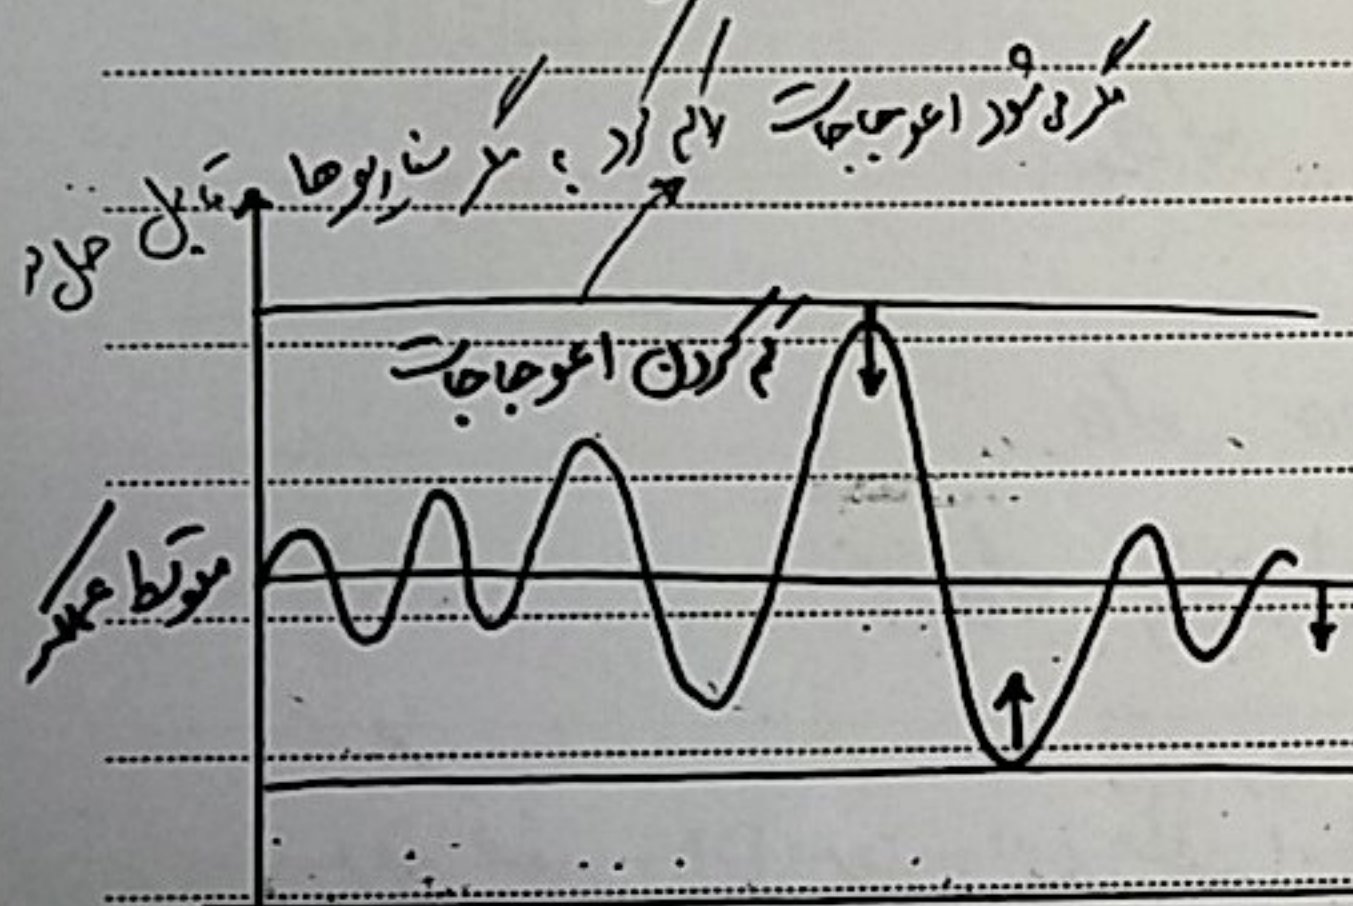 مگر می‌شود اعوجاجات
را کم کرد؟ مگر سناریوها قابل
حل؟
کم کردن اعوجاجات
متوسط عمر